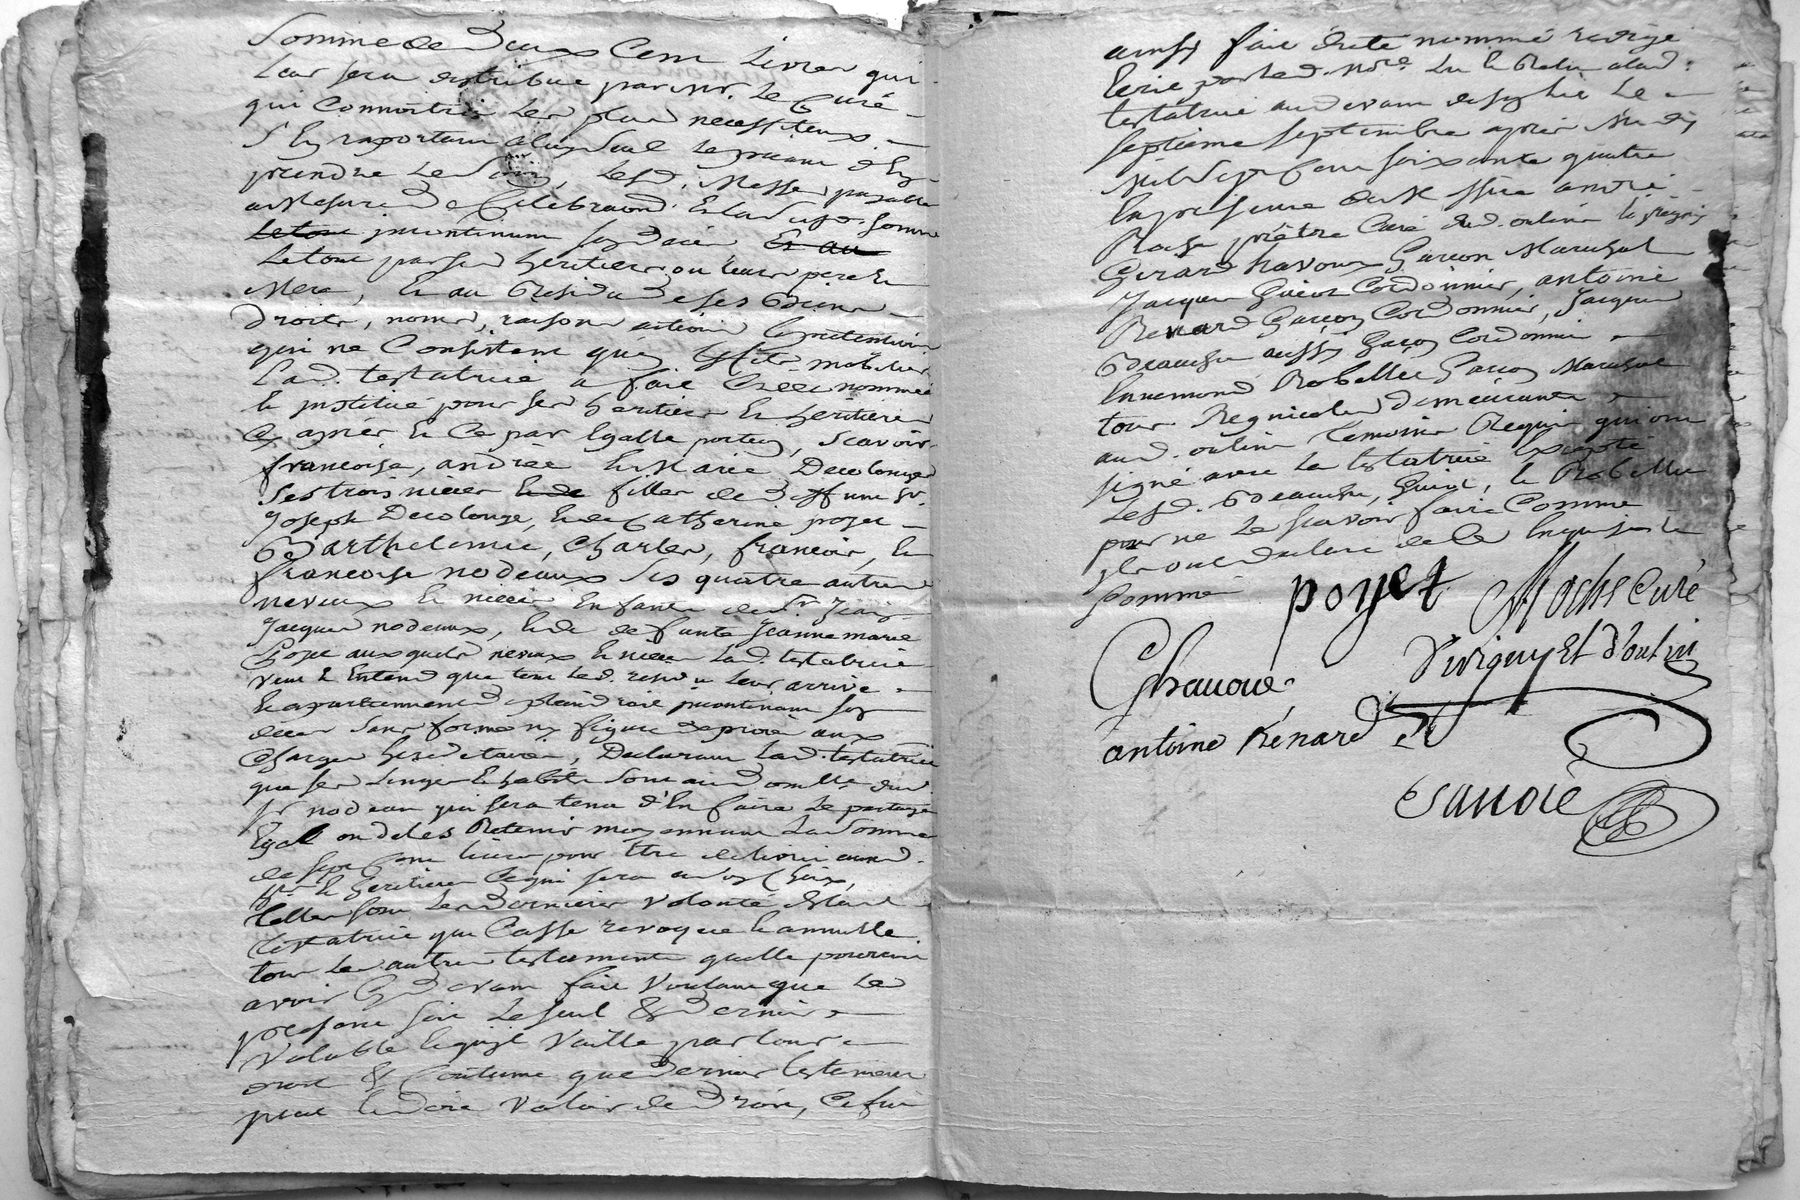 Somme de Deux Cent Livres qui
Leur sera distribué par Mr. Le Curé
qui Connoitra Les plus necessiteux
S'En raportant a luy Seul Le priant d'En
prendre Le Soin, Lesd. Messes payables
a Mesure de Celebraon. Et lad. susd. somme
Letout incontinent son Deces Et au
Letout par ses heritiers ou leurs pere Et
Mere, Et au Residu De ses Biens
Droits, noms, raisons actions Et pretentions
qui ne Consistent qu'en Effets mobiliers
Lad. testatrice a fait Créé nommé
Et institué pour ses heritiers Et heritieres
Cy apres Et Ce par Egalle portion, Scavoir
francoise, andrée Et Marie Decolonge
Ses trois nieces Et de filles de Deffunt Sr.
Joseph Decolonge, Et de Catherine poyet
Barthelemie, Charles, francois, Et
francoise nodeaux Ses quatre autres
neveux Et nieces Enfants de Sr. Jean
Jacques nodeaux, Et de defunte Jeanne marie
Poyet auxquels neveux Et nieces Lad. testatrice
veut Et Entend que tout Led. residu Leur arrive
Et apartiennent a plein droit incontinent son
deces Sans forme ny figure de procès aux
Charges hereditaires, Declarant Lad. testatrice
que ses Linges Et habits Sont au Domlle. dud.
Sr. nodeau qui sera tenu d'En faire Le partage
Egal ou de les Retenir moyennant La Somme
de sept Cent livres pour Etre delivré auxd.
hers. Et heritieres Ce qui sera a son Choix,
telles sont Les Dernieres volonté de lad.
testatrice qui Casse revoque Et annulle
tous Les autres testaments quelle pourroit
avoir Cy Devant fait Voulant que Le
present soit Le seul & Dernier
Valable Et qu'il Vaille par tout
droit & Coutume que Dernier testament
peut Et Doit Valoir de Droit, Ce fut
ainsy fait dicté nommé redigé
Ecrit par led. Nore. Lu Et Relu a lad.
testatrice aud. evant Le
septieme septembre apres Midy
Mil Sept Cent soixante quatre
En presence de Messire andré
Rochs prêtre Curé dud. oulin
Girard havoux Garcon Marechal
Jacques Guiot Cordonnier, antoine
Renard Garcon Cordonnier, Jacques
Beauche aussy Garcon Cordonnier
Ennemond Robellet Garcon Marechal
tous Regnicoles Demeurants
aud. oulin Temoins Requis qui ont
signé avec La testatrice Excepté
Lesd. Beauche, Guiot, Et Robellet
pour ne Le scavoir faire Comme
ils ont declaré de Ce Enquis Et
Sommé
poyet Rochs Curé
Ghavoué d'irigny Et d'oulin
antoine Renard
Savoié